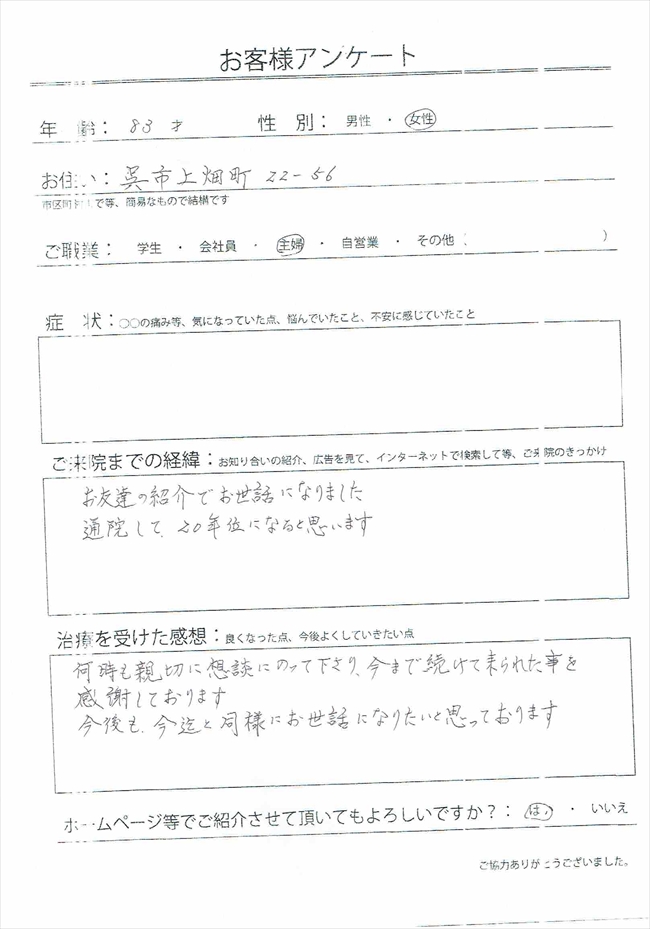 お客様アンケート
年 齢： 83才 性 別： 男性 ・ 女性
お住い： 呉市上畑町 22-56
市区町村まで等、簡易なもので結構です
ご職業： 学生 ・ 会社員 ・ 主婦 ・ 自営業 ・ その他（ ）
症 状：○○の痛み等、気になっていた点、悩んでいたこと、不安に感じていたこと
ご来院までの経緯：お知り合いの紹介、広告を見て、インターネットで検索して等、ご来院のきっかけ
お友達の紹介でお世話になりました
通院して、20年位になると思います
治療を受けた感想：良くなった点、今後よくしていきたい点
何時も親切に想談にのって下さり、今まで続けて来られた事を
感謝しております
今後も、今迄と同様にお世話になりたいと思っております
ホームページ等でご紹介させて頂いてもよろしいですか？： はい ・ いいえ
ご協力ありがとうございました。